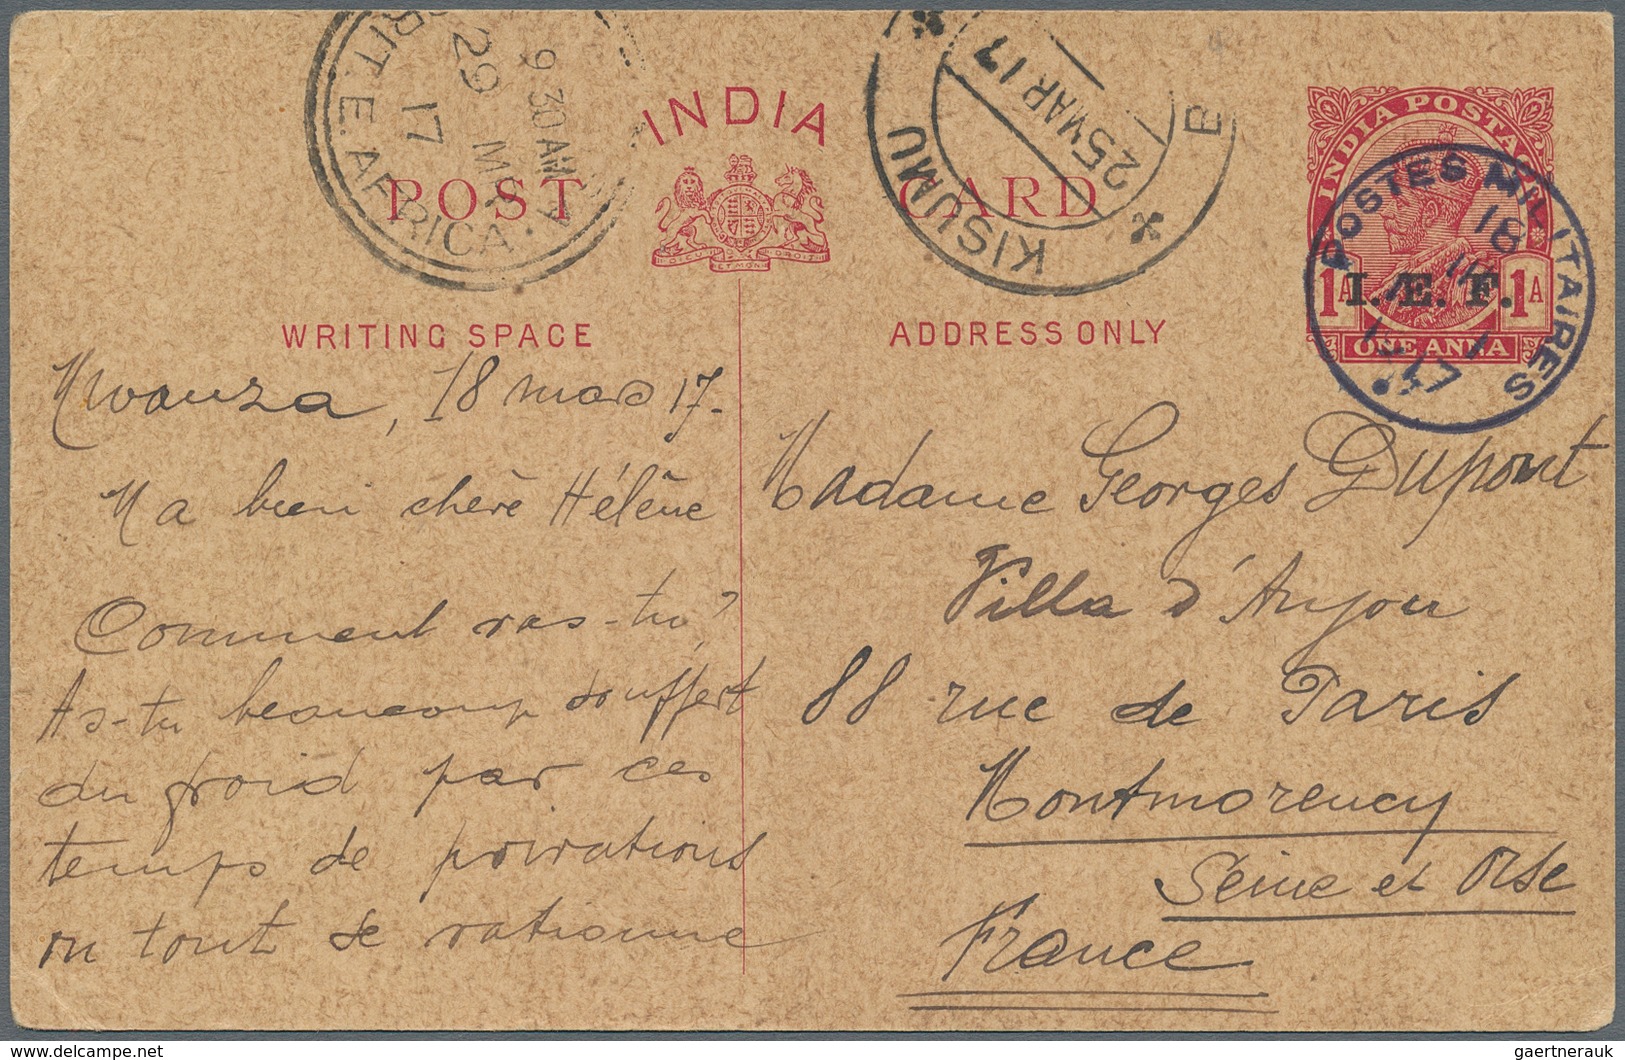 BRIT. E. AFRICA. A
9 30 AM
29 MR
17
KISUMU B
25 MAR 17
INDIA
POST CARD
INDIA POSTAGE
1A 1A
ONE ANNA
I. E. F.
POSTES MILITAIRES
18
WRITING SPACE
ADDRESS ONLY
Mwanza, 18 mars 17.
Ma bien chère Hélène
Comment vas-tu?
As-tu beaucoup souffert
du froid par ces
temps de privations
où tout se rationne
Madame Georges Dupont
Villa d'Anjou
88 rue de Paris
Montmorency
Seine et Oise
France
gaertnerauk
delcampe.net